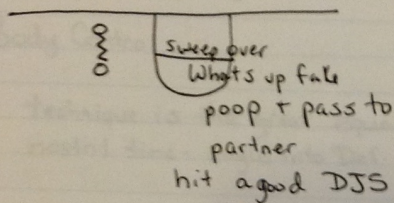 sweep over
Whats up fake
poop + pass to
partner
hit a good DJS